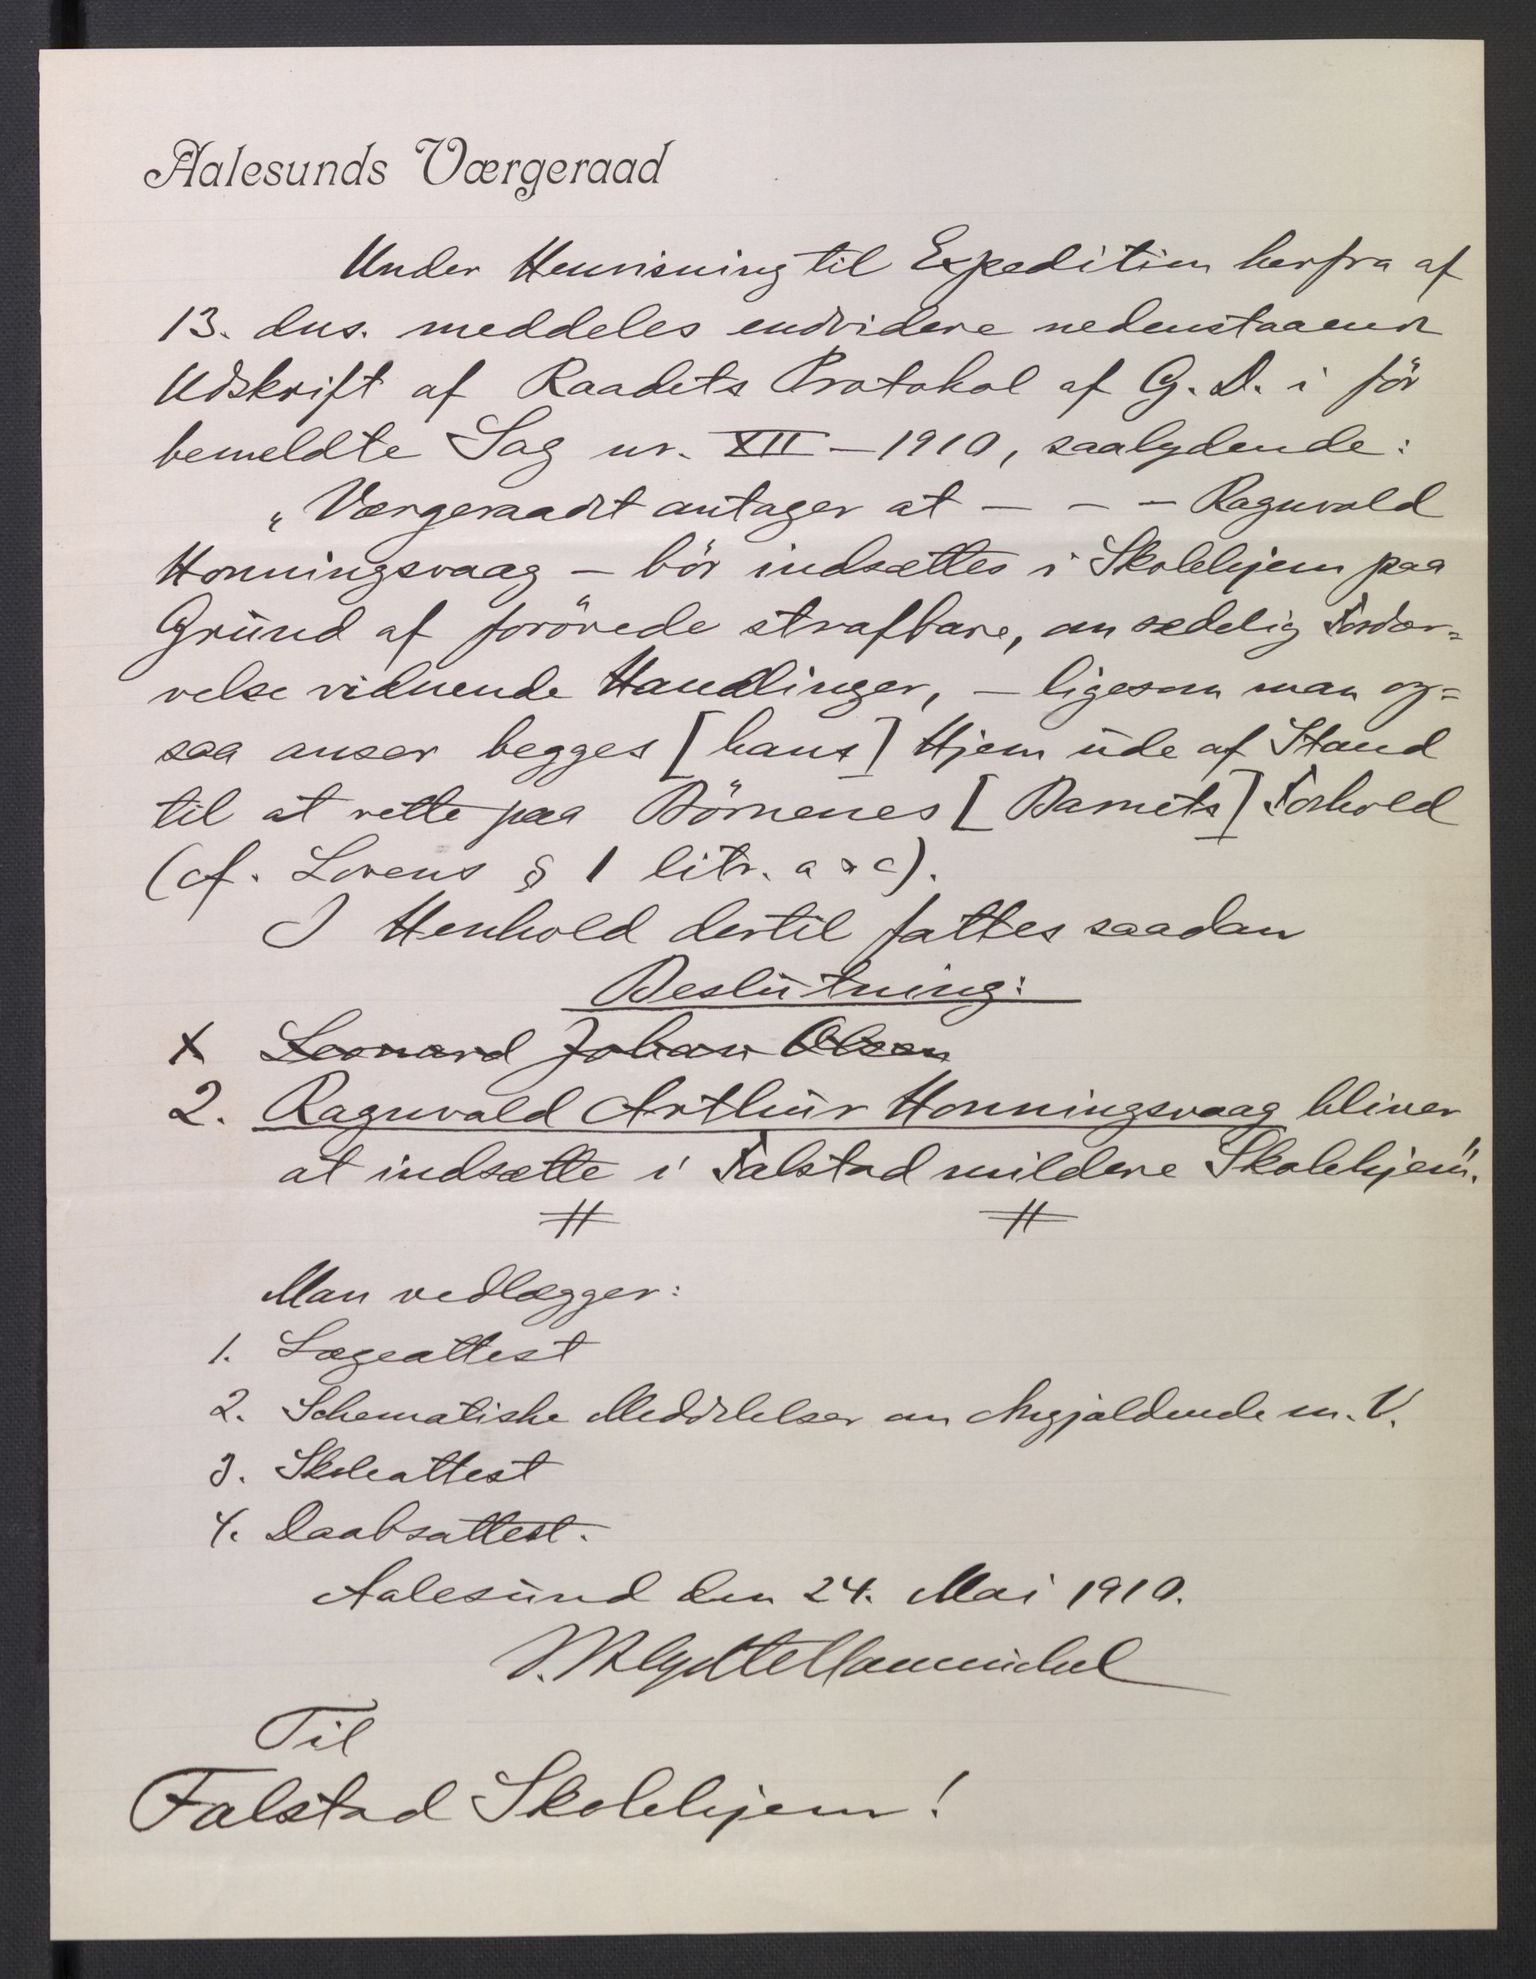 AalesundsVærgeraad
Under Henvisning til Expedition herfra af
13. dns. meddeles endvidere nedenstaaende
Udskrift af Raadets Protokol af G. D. i før
bemeldte Sag nr. XII – 1910, saalydende:
„Værgeraadet antager at – – – Ragnvald
Honningsvaag – bör indsættes i Skolehjem paa
Grund af forövede strafbare, om sædelig Fordær=
velse vidnende Handlinger, – ligesom man og=
saa anser begges [hans] Hjem ude af Stand
til at rette paa Börnenes [Barnets] Forhold
(cf. Lovens § 1 litr. a & c).
I Henhold dertil fattes saadan
Beslutning:
X Leonard Johan Olsen
2. Ragnvald Arthur Honningsvaag bliver
at indsætte i Falstad mildere Skolehjem".
Man vedlægger:
1. Lægeattest
2. Schematiske Meddelelser om Angjældende m. V.
3. Skoleattest
4. Daabsattest.
Aalesund den 24. Mai 1910.
Til
Falstad Skolehjem!